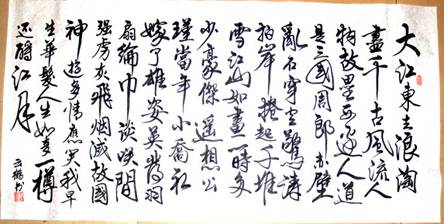 大江東去浪淘
盡千古風流人
物故壘西邊人道
是三國周郎赤壁
亂石穿空驚濤
拍岸捲起千堆
雪江山如畫一時多
少豪傑遙想公
瑾當年小喬初
嫁了雄姿英發羽
扇綸巾談笑間
強虜灰飛烟滅故國
神遊多情應笑我早
生華髮人生如夢一樽
還酹江月